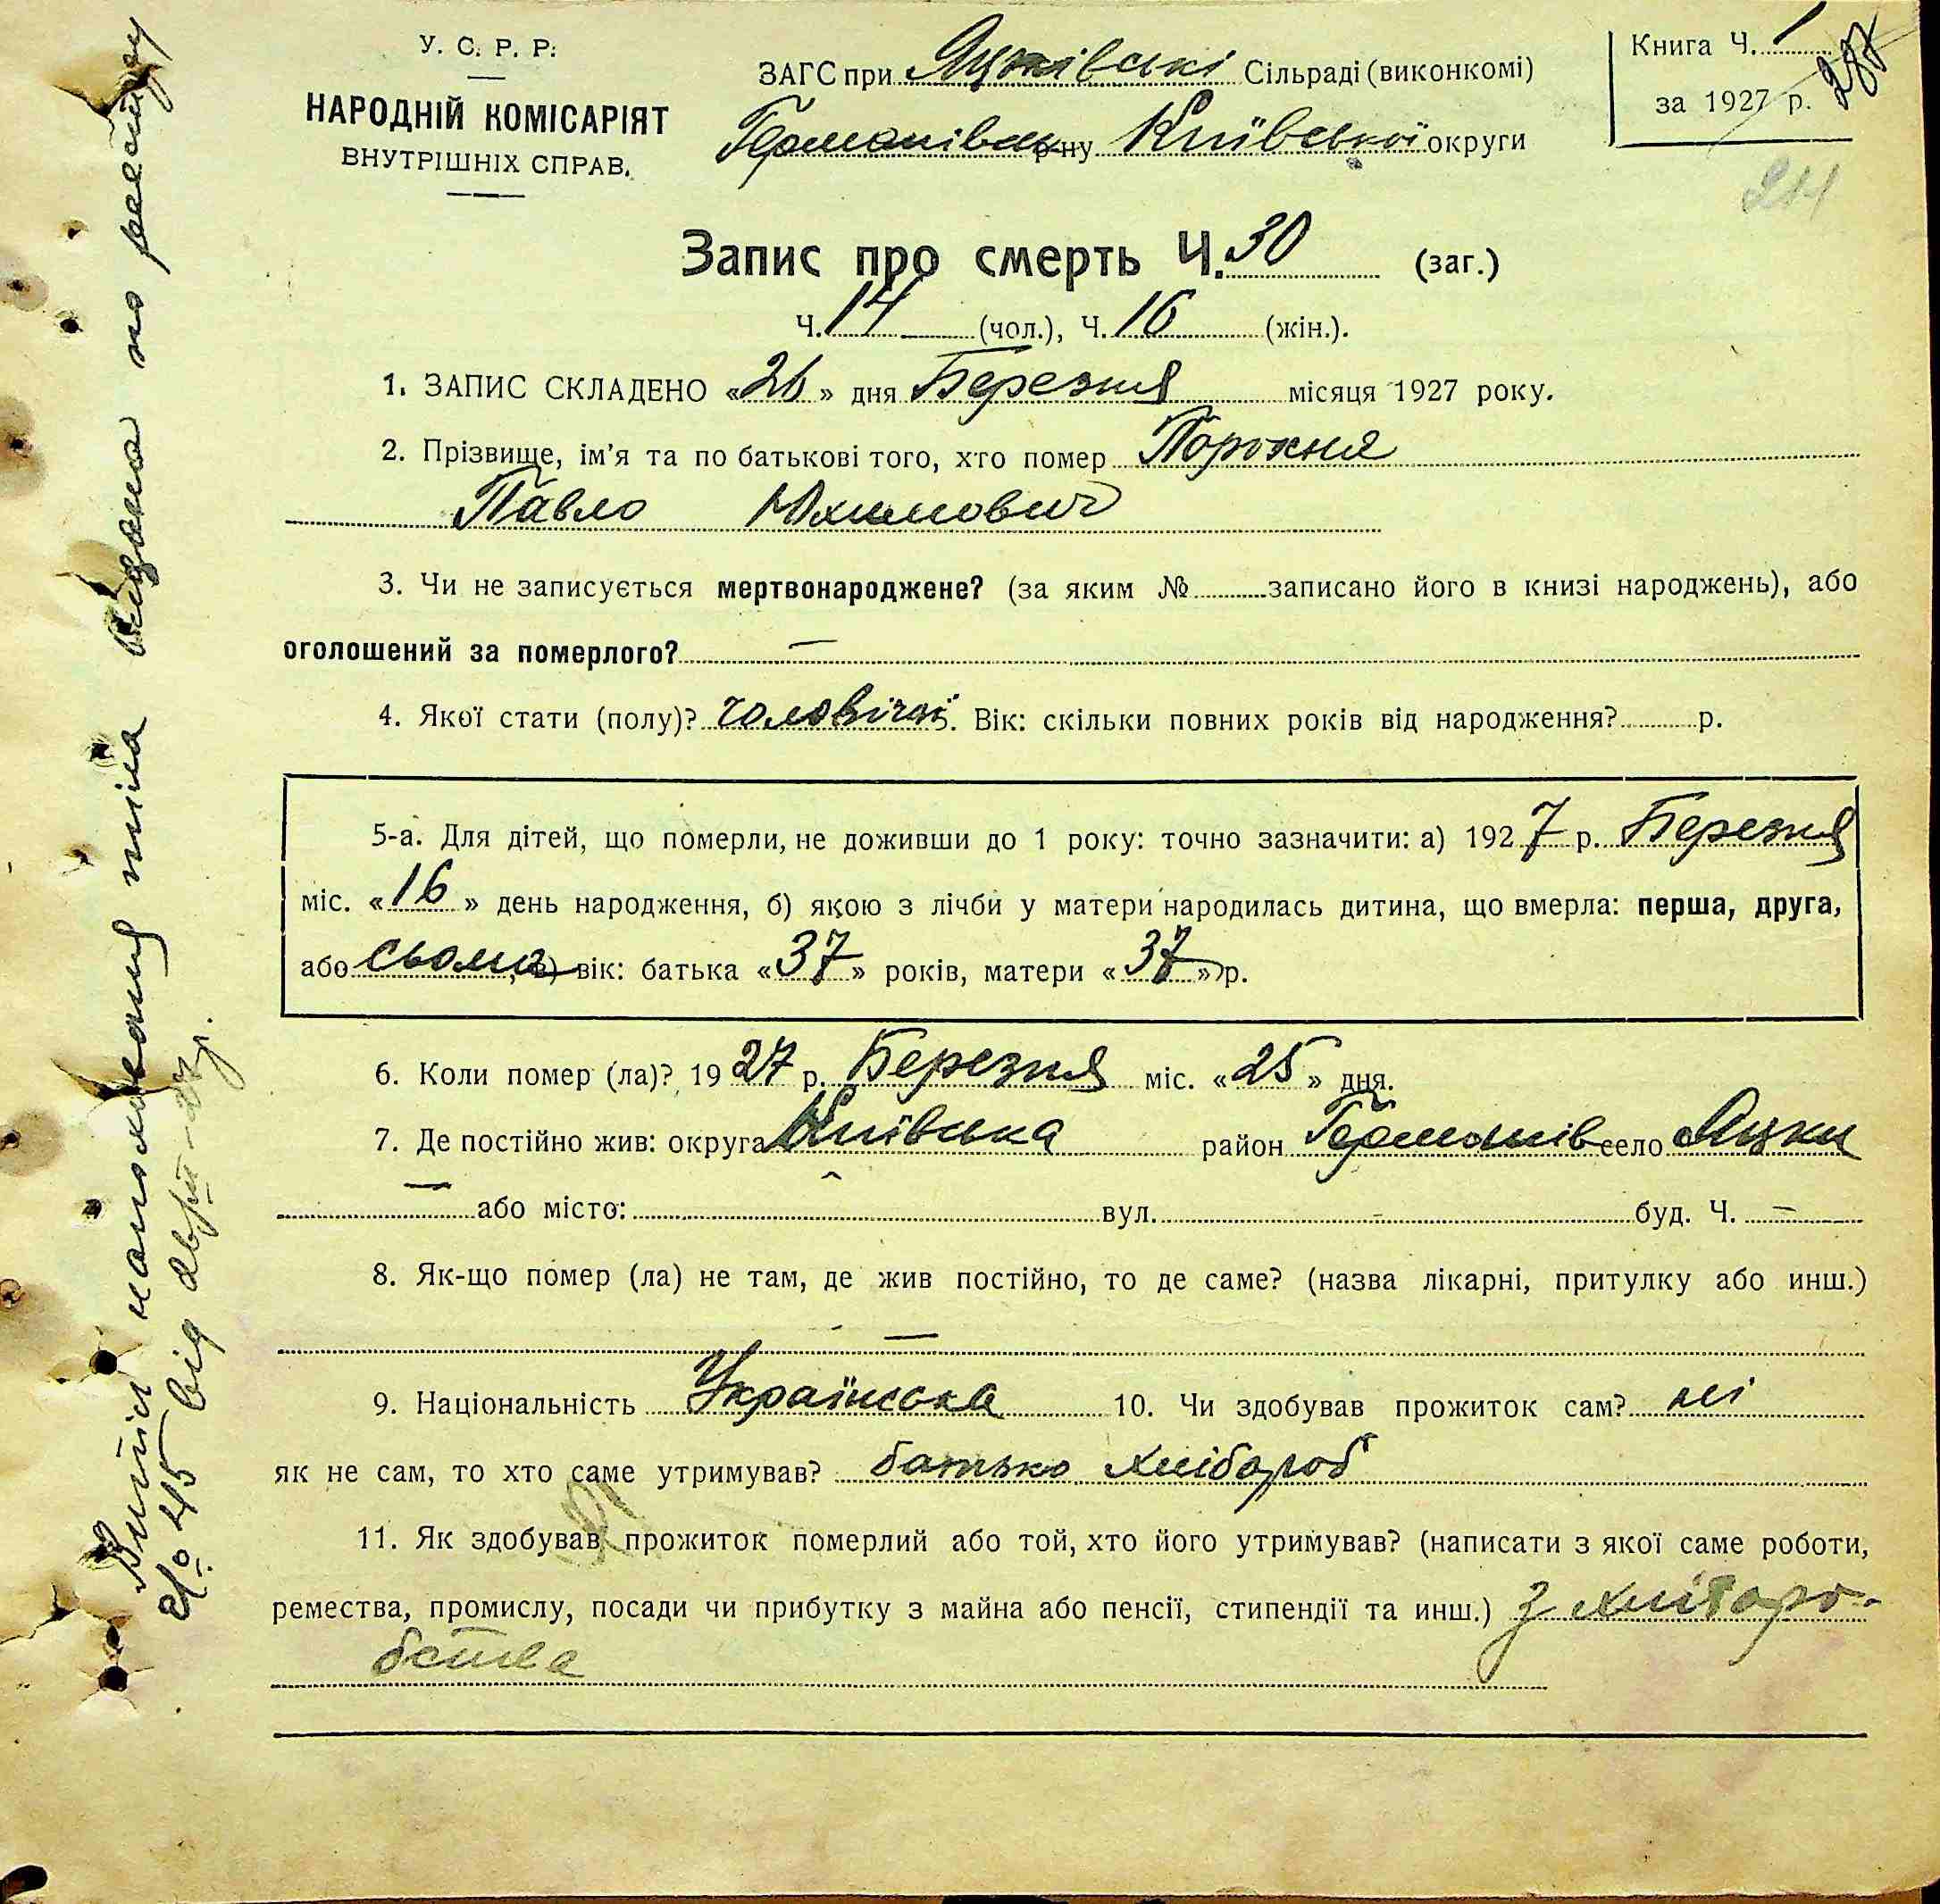 У. С. Р. Р.
НАРОДНІЙ КОМІСАРІЯТ
ВНУТРІШНІХ СПРАВ.
ЗАГС при Яцківські Сільраді (виконкомі)
Германівськ р-ну Київської округи
Книга Ч. 1
за 1927 р.
214
Запис про смерть Ч. 30 (заг.)
Ч. 14 (чол.), Ч. 16 (жін.).
1. ЗАПИС СКЛАДЕНО «26» дня Березня місяця 1927 року.
2. Прізвище, ім'я та по батькові того, хто помер Порожня
Павло Юхимович
3. Чи не записується мертвонароджене? (за яким № записано його в книзі народжень), або
оголошений за померлого? —
4. Якої стати (полу)? чоловічої. Вік: скільки повних років від народження? р.
5-а. Для дітей, що померли, не доживши до 1 року: точно зазначити: а) 1927 р. Березня
міс. «16» день народження, б) якою з лічби у матери народилась дитина, що вмерла: перша, друга,
або сьома, в) вік: батька «37» років, матери «37» р.
6. Коли помер (ла)? 1927 р. Березня міс. «25» дня.
7. Де постійно жив: округа Київська район Германів село Яцки
— або місто: вул. - буд. Ч. —
8. Як-що помер (ла) не там, де жив постійно, то де саме? (назва лікарні, притулку або инш.)
—
9. Національність Українська 10. Чи здобував прожиток сам? ні
як не сам, то хто саме утримував? батько хлібороб
11. Як здобував прожиток померлий або той, хто його утримував? (написати з якої саме роботи,
ремества, промислу, посади чи прибутку з майна або пенсії, стипендії та инш.) З хлібаро-
бства
Витіг на поховання тіла видана по реєстру
№ 45 від